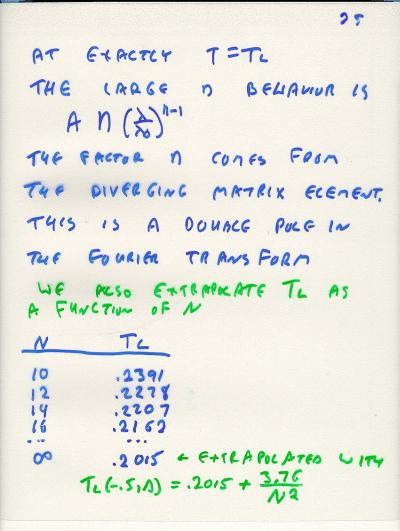 25
AT EXACTLY T = TL
THE LARGE n BEHAVIOR IS
A n (λ/λ0)^n-1
THE FACTOR n COMES FROM
THE DIVERGING MATRIX ELEMENT.
THIS IS A DOUBLE POLE IN
THE FOURIER TRANSFORM
WE ALSO EXTRAPOLATE TL AS
A FUNCTION OF N
N TL
10 .2391
12 .2278
14 .2207
16 .2162
... ...
∞ .2015 ← EXTRAPOLATED WITH
TL(-.5,Δ) = .2015 + 3.76/N2